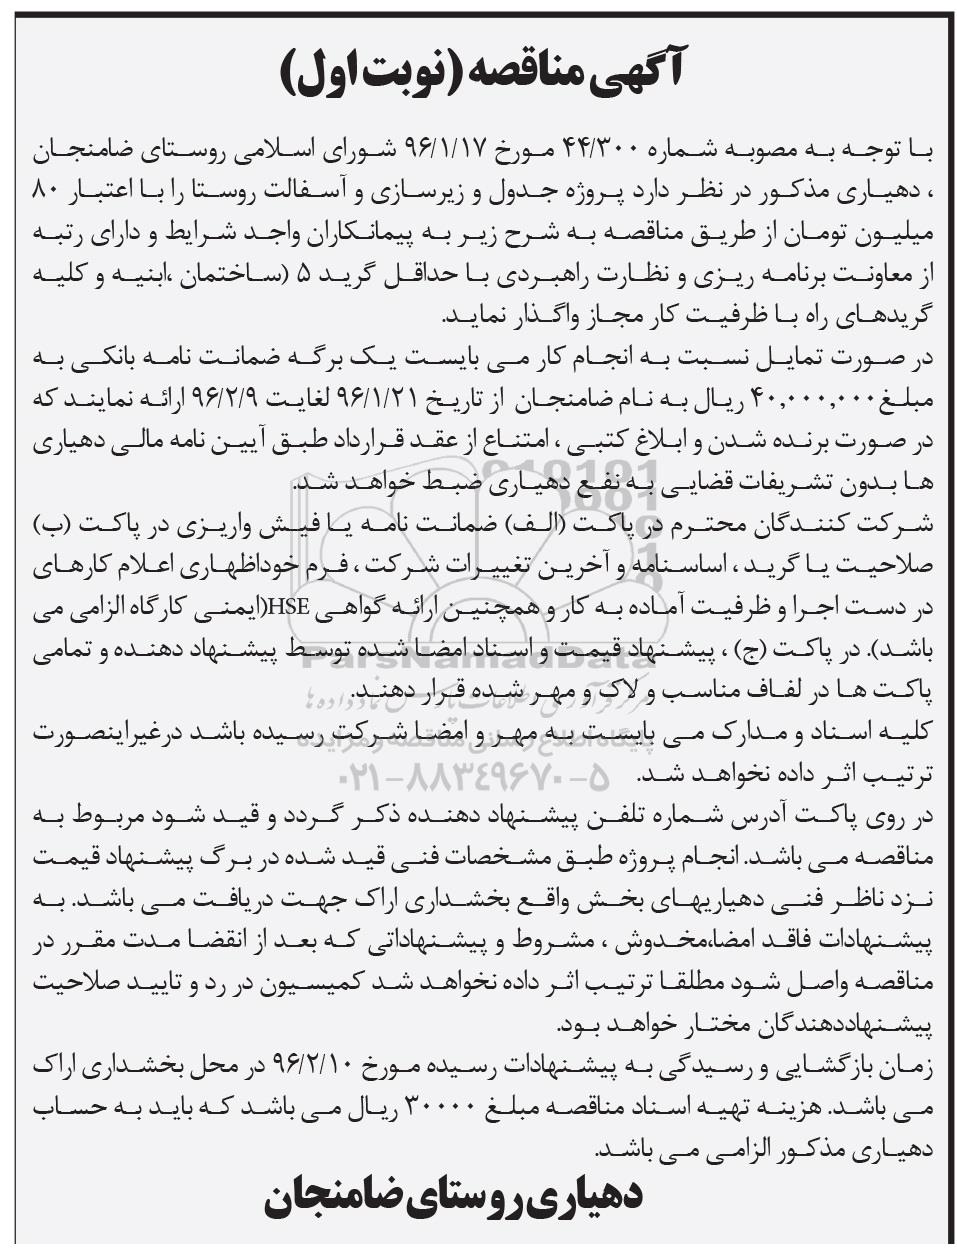 آگهی مناقصه (نوبت اول)
با توجه به مصوبه شماره ۴۴/۳۰۰ مورخ ۹۶/۱/۱۷ شورای اسلامی روستای ضامنجان
، دهیاری مذکور در نظر دارد پروژه جدول و زیرسازی و آسفالت روستا را با اعتبار ۸۰
میلیون تومان از طریق مناقصه به شرح زیر به پیمانکاران واجد شرایط و دارای رتبه
از معاونت برنامه ریزی و نظارت راهبردی با حداقل گرید ۵ (ساختمان ،ابنیه و کلیه
گریدهای راه با ظرفیت کار مجاز واگذار نماید.
در صورت تمایل نسبت به انجام کار می بایست یک برگه ضمانت نامه بانکی به
مبلغ ۴۰,۰۰۰,۰۰۰ ریال به نام ضامنجان از تاریخ ۹۶/۱/۲۱ لغایت ۹۶/۲/۹ ارائه نمایند که
در صورت برنده شدن و ابلاغ کتبی ، امتناع از عقد قرارداد طبق آیین نامه مالی دهیاری
ها بدون تشریفات قضایی به نفع دهیاری ضبط خواهد شد.
شرکت کنندگان محترم در پاکت (الف) ضمانت نامه یا فیش واریزی در پاکت (ب)
صلاحیت یا گرید ، اساسنامه و آخرین تغییرات شرکت ، فرم خوداظهاری اعلام کارهای
در دست اجرا و ظرفیت آماده به کار و همچنین ارائه گواهی HSE(ایمنی کارگاه الزامی می
باشد). در پاکت (ج) ، پیشنهاد قیمت و اسناد امضا شده توسط پیشنهاد دهنده و تمامی
پاکت ها در لفاف مناسب و لاک و مهر شده قرار دهند.
کلیه اسناد و مدارک می بایست به مهر و امضا شرکت رسیده باشد درغیراینصورت
ترتیب اثر داده نخواهد شد.
در روی پاکت آدرس شماره تلفن پیشنهاد دهنده ذکر گردد و قید شود مربوط به
مناقصه می باشد. انجام پروژه طبق مشخصات فنی قید شده در برگ پیشنهاد قیمت
نزد ناظر فنی دهیاریهای بخش واقع بخشداری اراک جهت دریافت می باشد. به
پیشنهادات فاقد امضا،مخدوش ، مشروط و پیشنهاداتی که بعد از انقضا مدت مقرر در
مناقصه واصل شود مطلقا ترتیب اثر داده نخواهد شد کمیسیون در رد و تایید صلاحیت
پیشنهاددهندگان مختار خواهد بود.
زمان بازگشایی و رسیدگی به پیشنهادات رسیده مورخ ۹۶/۲/۱۰ در محل بخشداری اراک
می باشد. هزینه تهیه اسناد مناقصه مبلغ ۳۰۰۰۰ ریال می باشد که باید به حساب
دهیاری مذکور الزامی می باشد.
دهیاری روستای ضامنجان
ParsNamadData
پایگاه اطلاع رسانی مناقصه و مزایده
۰۲۱-۸۸۳۴۹۶۷۰-۵